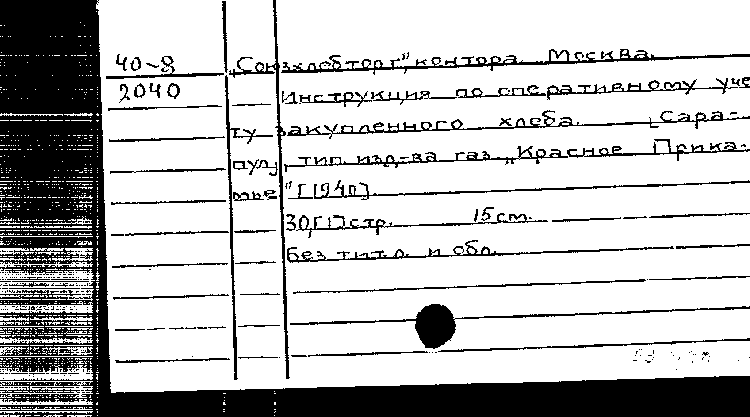 40-8 „Союзхлебторг", контора. Москва.
2040 Инструкция по оперативному уче-
ту закупленного хлеба. [Сара-
пул], тип. изд-ва газ. „Красное Прика-
мье" [1940].
30,[1] стр. 15 см.
Без тит. л. и обл.